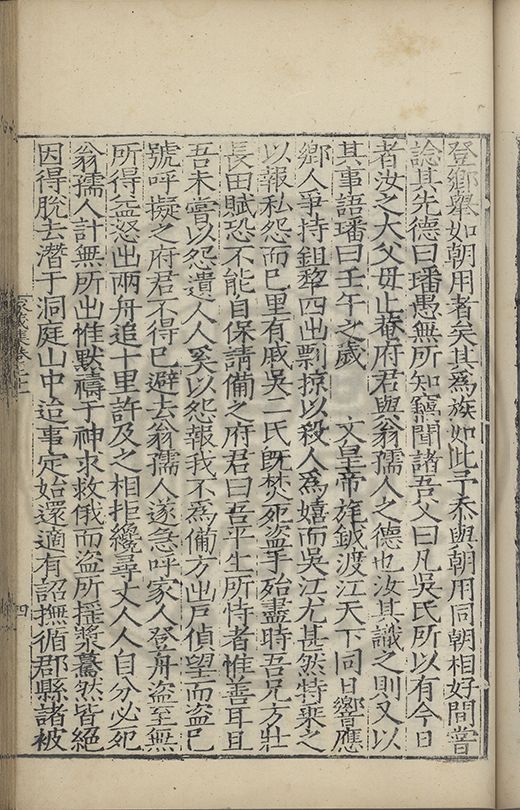 登鄉舉如朝用者矣其為族如此予忝與朝用同朝相好間嘗
諗其先德曰璠愚無所知竊聞諸吾父曰凡吳氏所以有今日
者汝之大父毋止菴府君與翁孺人之德也汝其識之則又以
其事語璠曰壬午之歲 文皇帝旄鉞渡江天下同日響應
鄉人爭持鉏犂四出剽掠以殺人為嬉而吳江尤甚然特乗之
以報私怨而巳里有戚吳二氏旣焚死盗手殆盡時吾兄方壯
長田賦恐不能自保請備之府君曰吾平生所恃者惟善耳且
吾未嘗以怨遺人人奚以怨報我不為備方出戶偵望而盗巳
號呼擬之府君不得巳避去翁孺人遂急呼家人登舟盗至無
所得益怒出兩舟追十里許及之相拒纔尋丈人人自分必死
翁孺人計無所出惟默禱于神求救俄而盗所揺槳驀然皆絕
因得脫去潛于洞庭山中迨事定始還適有詔撫循郡縣諸被
四